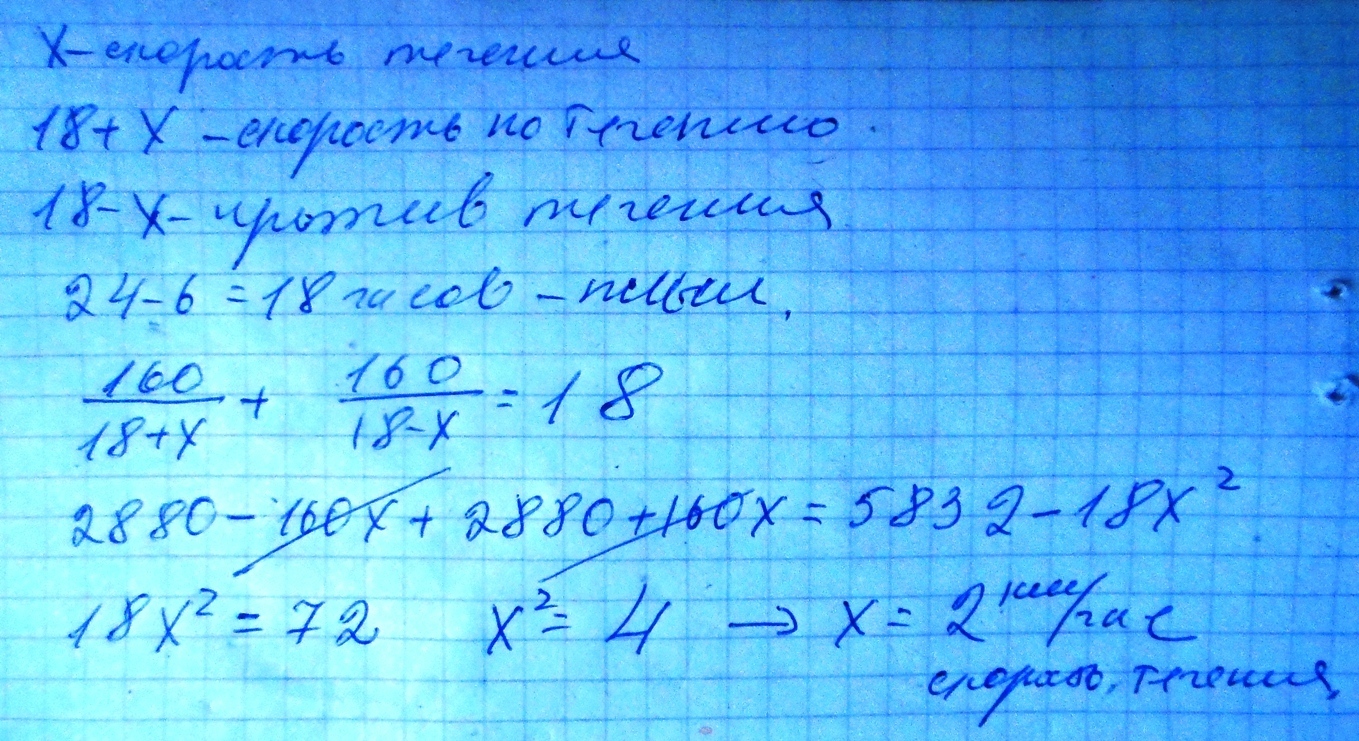 X - скорость течения
18 + X - скорость по течению.
18 - X - против течения
24 - 6 = 18 часов - плыл.
160/(18+X) + 160/(18-X) = 18
2880 - 160X + 2880 + 160X = 5832 - 18X²
18X² = 72 X² = 4 → X = 2 км/час
скорость течения